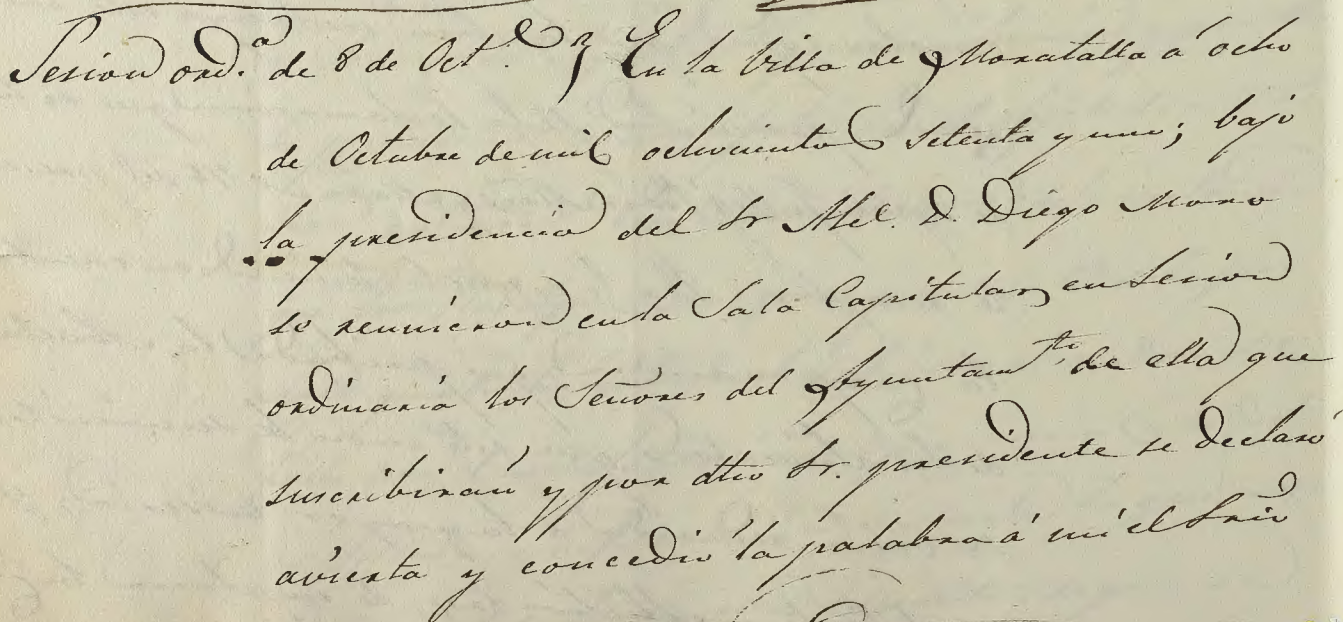 Sesion ord.ª de 8 de Oct.e } En la Villa de Moratalla á ocho
de Octubre de mil ochocientos setenta y uno; bajo
la presidencia del Sr Alc. D. Diego Moro
se reunieron en la Sala Capitular en sesion
ordinaria los Señores del Ayuntam.to de ella que
suscribirán y por dho Sr. presidente se declaró
avierta y concedió la palabra á mi el Srio